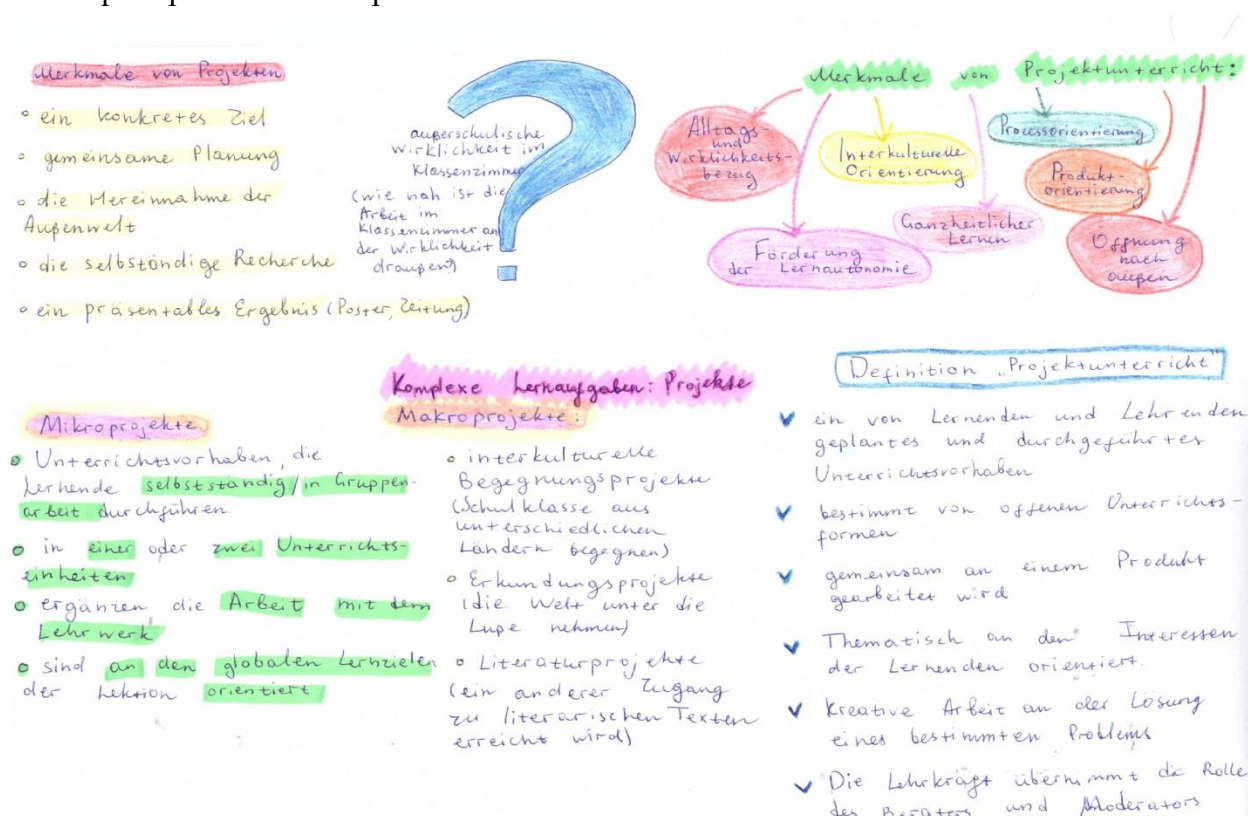 Merkmale von Projekten
ein konkretes Ziel
gemeinsame Planung
die Hereinnahme der
Außenwelt
die selbständige Recherche
ein präsentables Ergebnis (Poster, Zeitung)
außerschulische
Wirklichkeit im
Klassenzimmer
(wie nah ist die
Arbeit im
Klassenzimmer an
der Wirklichkeit
draußen?)
Merkmale von Projektunterricht:
Alltags-
und
Wirklichkeits-
bezug
Förderung
der Lernautonomie
Interkulturelle
Orientierung
Ganzheitlicher
Lernen
Prozessorientierung
Produkt-
orientierung
Öffnung
nach
außen
Komplexe Lernaufgaben: Projekte
Mikroprojekte:
Unterrichtsvorhaben, die
Lernende selbstständig/in Gruppen-
arbeit durchführen
in einer oder zwei Unterrichts-
einheiten
ergänzen die Arbeit mit dem
Lehrwerk
sind an den globalen Lernzielen
der Lektion orientiert
Makroprojekte:
interkulturelle
Begegnungsprojekte
(Schulklasse aus
unterschiedlichen
Ländern begegnen)
Erkundungsprojekte
(die Welt unter die
Lupe nehmen)
Literaturprojekte
(ein anderer Zugang
zu literarischen Texten
erreicht wird)
Definition „Projektunterricht"
ein von Lernenden und Lehrenden
geplantes und durchgeführtes
Unterrichtsvorhaben
bestimmt von offenen Unterrichts-
formen
gemeinsam an einem Produkt
gearbeitet wird
Thematisch an den Interessen
der Lernenden orientiert.
kreative Arbeit an der Lösung
eines bestimmten Problems
Die Lehrkraft übernimmt die Rolle
des Beraters und Moderators